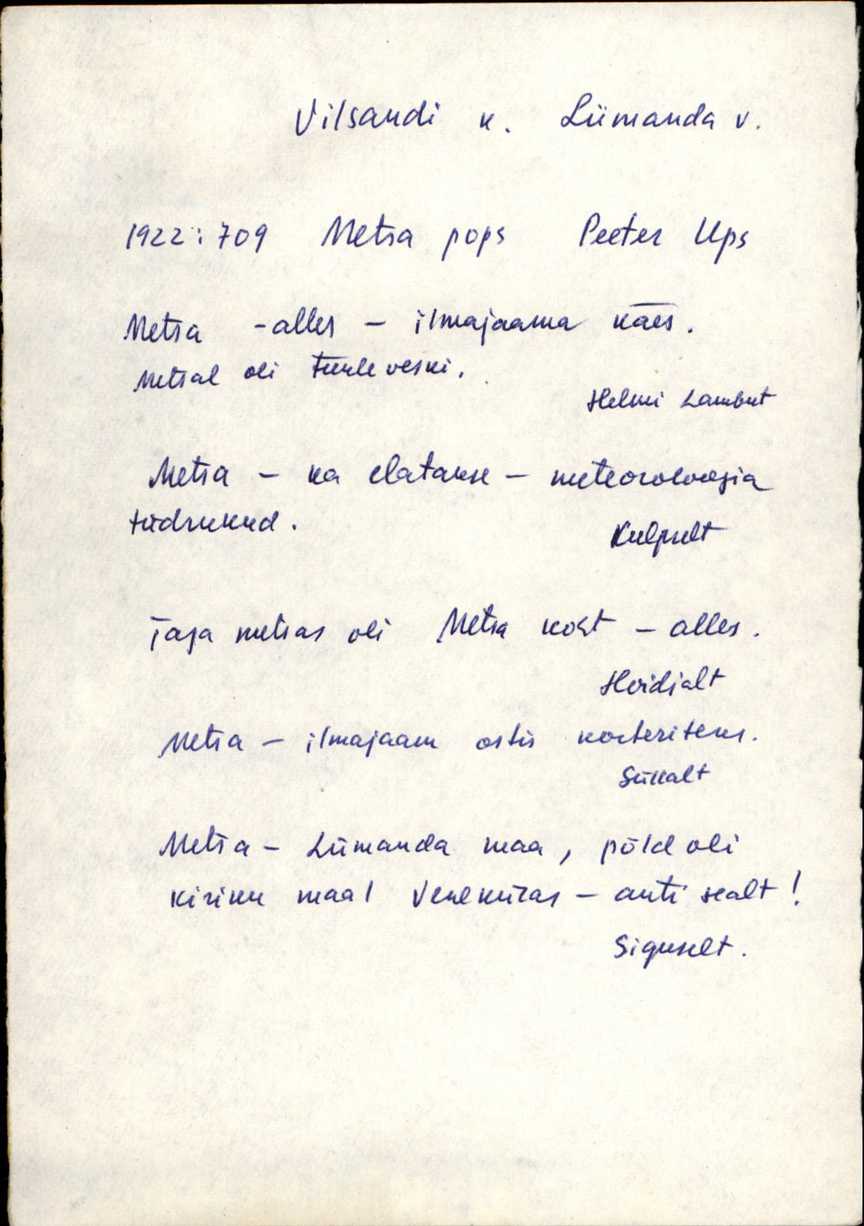 Vilsandi k. Lümanda v.
1922:709 Metsa pops Peeter Ups
Metsa - alles - ilmajaama käes.
Metsal oli tuuleveski.
Helmi Lambut
Metsa - ka elatakse - meteoroloogia
tüdrukud.
Kulpult
Taga metsas oli Metsa koht - alles.
Heidialt
Metsa - ilmajaam ostis korteriteks.
Siikalt
Metsa - Lümanda maa, põld oli
kiriku maal Venekuras - anti sealt!
Siguselt.